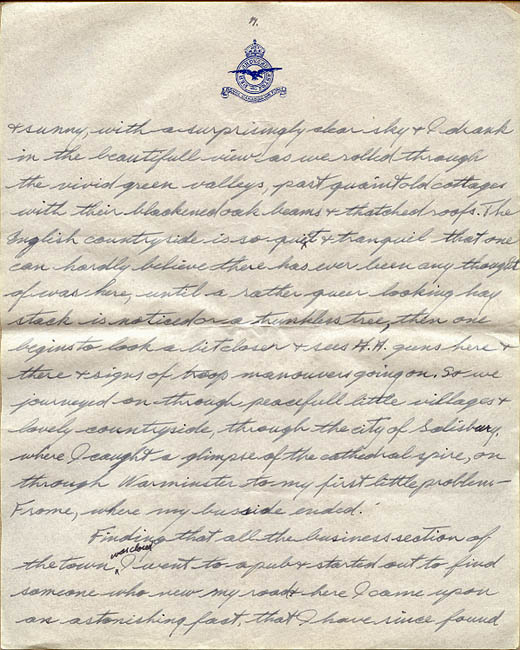 4.
PER ARDUA AD ASTRA
ROYAL CANADIAN AIR FORCE
& sunny, with a surprisingly clear sky & I drank
in the beautifull view as we rolled through
the vivid green valleys, past quaint old cottages
with their blackened oak beams & thatched roofs. The
English countryside is so quiet & tranquil that one
can hardly believe there has ever been any thought
of was here, until a rather queer looking hay
stack is noticed or a trunkless tree, then one
begins to look a bit closer & sees A.A. guns here &
there & signs of troop manouvers going on. So we
journeyed on through peacefull little villages &
lovely countryside, through the city of Salisbury,
where I caught a glimpse of the cathedral spire, on
through Warminster & to my first little problem –
Frome, where my bus ride ended.
Finding that all the business section of
the town was closed, I went to a pub & started out to find
someone who new my road & here I came upon
an astonishing fact, that I have since found